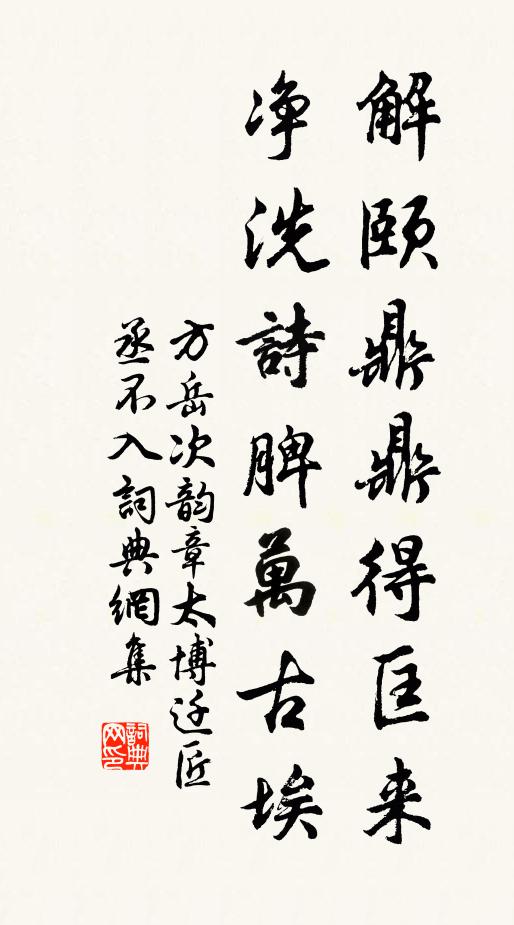 解頤鼎鼎得匡来
净洗詩脾萬古埃
方岳次韵章太博迂匠
丞不入詞典網集
詞典网印